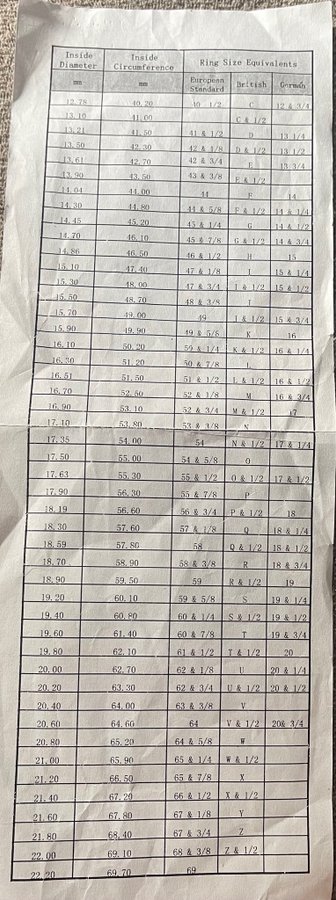 Inside Diameter Inside Circumference Ring Size Equivalents
mm mm European Standard British German
12.78 40.20 40 1/2 C 12 & 3/4
13.10 41.00 C & 1/2
13.21 41.50 41 & 1/2 D 13 1/4
13.50 42.30 42 & 1/8 D & 1/2 13 1/2
13.61 42.70 42 & 3/4 E 13 3/4
13.90 43.50 43 & 3/8 E & 1/2
14.04 44.00 44 F 14
14.30 44.80 44 & 5/8 F & 1/2 14 & 1/4
14.45 45.20 45 & 1/4 G 14 & 1/2
14.70 46.10 45 & 7/8 G & 1/2 14 & 3/4
14.86 46.50 46 & 1/2 H 15
15.10 47.40 47 & 1/8 I 15 & 1/4
15.30 48.00 47 & 3/4 I & 1/2 15 & 1/2
15.50 48.70 48 & 3/8 J
15.70 49.00 49 J & 1/2 15 & 3/4
15.90 49.90 49 & 5/8 K 16
16.10 50.20 59 & 1/4 K & 1/2 16 & 1/4
16.30 51.20 50 & 7/8 L
16.51 51.50 51 & 1/2 L & 1/2 16 & 1/2
16.70 52.50 52 & 1/8 M 16 & 3/4
16.90 53.10 52 & 3/4 M & 1/2 17
17.10 53.80 53 & 3/8 N
17.35 54.00 54 N & 1/2 17 & 1/4
17.50 55.00 54 & 5/8 O
17.63 55.30 55 & 1/2 O & 1/2 17 & 1/2
17.90 56.30 55 & 7/8 P
18.19 56.60 56 & 3/4 P & 1/2 18
18.30 57.60 57 & 1/8 Q 18 & 1/4
18.59 57.80 58 Q & 1/2 18 & 1/2
18.70 58.90 58 & 3/8 R 18 & 3/4
18.90 59.50 59 R & 1/2 19
19.20 60.10 59 & 5/8 S 19 & 1/4
19.40 60.80 60 & 1/4 S & 1/2 19 & 1/2
19.60 61.40 60 & 7/8 T 19 & 3/4
19.80 62.10 61 & 1/2 T & 1/2 20
20.00 62.70 62 & 1/8 U 20 & 1/4
20.20 63.30 62 & 3/4 U & 1/2 20 & 1/2
20.40 64.00 63 & 3/8 V
20.60 64.60 64 V & 1/2 20& 3/4
20.80 65.20 64 & 5/8 W
21.00 65.90 65 & 1/4 W & 1/2
21.20 66.50 65 & 7/8 X
21.40 67.20 66 & 1/2 X & 1/2
21.60 67.80 67 & 1/8 Y
21.80 68.40 67 & 3/4 Z
22.00 69.10 68 & 3/8 Z & 1/2
22.20 69.70 69